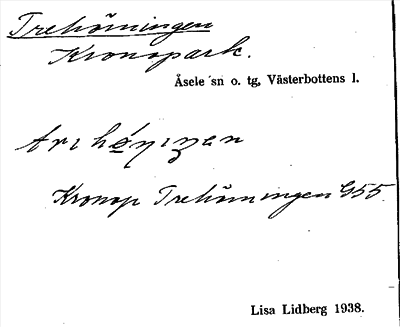 Trehörningen
Kronopark.
Åsele sn o. tg, Västerbottens l.
Kronop Trehörningen G55
Lisa Lidberg 1938.